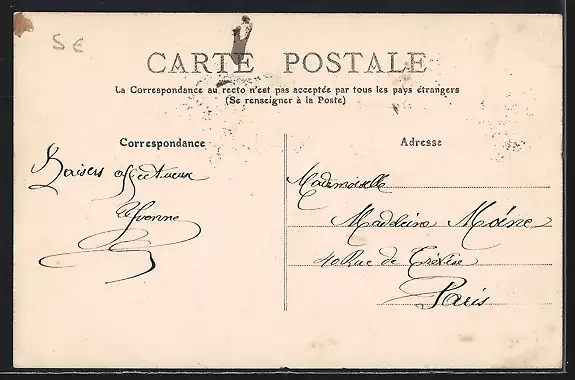 5 €
CARTE POSTALE
La Correspondance au recto n'est pas acceptée par tous les pays étrangers
(Se renseigner à la Poste)
Correspondance
Baisers affectueux
Yvonne
Adresse
Mademoiselle
Madeleine Moine
40 Rue de Trévise
Paris